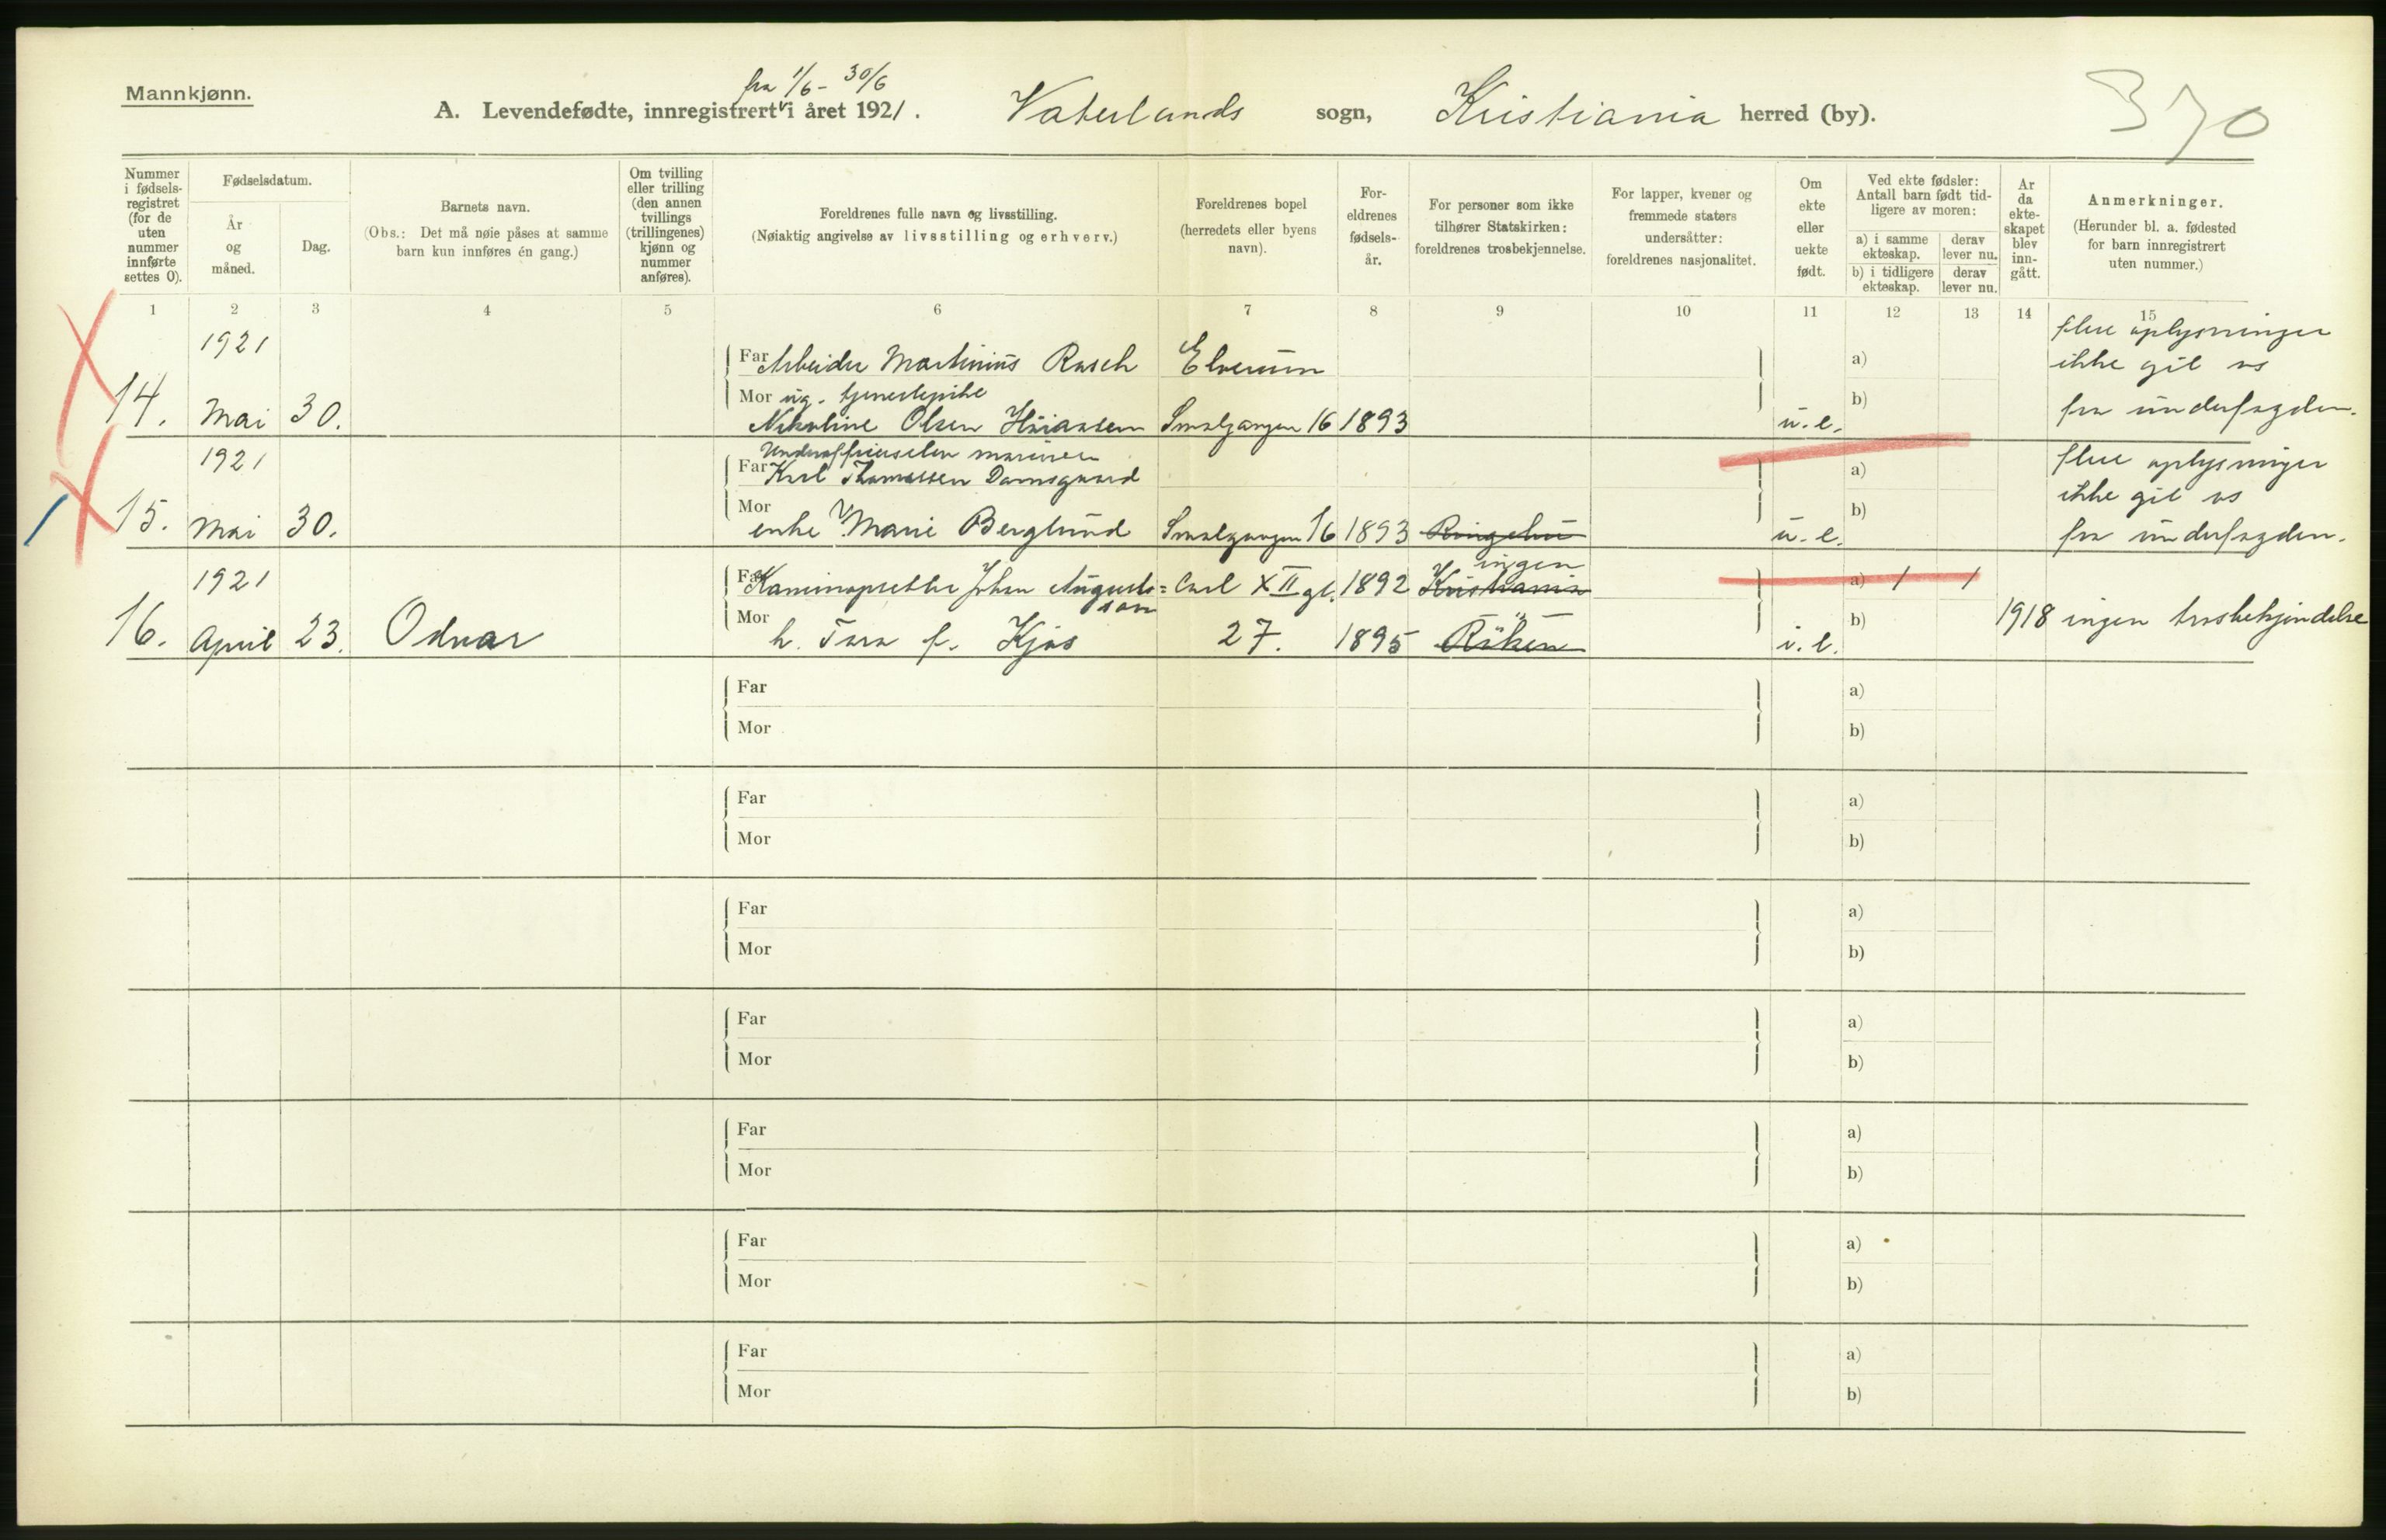 Mannkjønn.
fra 1/6 - 30/6
A. Levendefødte, innregistrert i året 1921. Vaterlands sogn, Kristiania herred (by).
370
Nummer i fødsels-registret (for de uten nummer innførte settes 0).
Fødselsdatum.
År og måned.
Dag.
Barnets navn.
(Obs.: Det må nøie påses at samme barn kun innføres én gang.)
Om tvilling eller trilling (den annen tvillings (trillingenes) kjønn og nummer anføres).
Foreldrenes fulle navn og livsstilling.
(Nøiaktig angivelse av livsstilling og erhverv.)
Foreldrenes bopel (herredets eller byens navn).
For-eldrenes fødsels-år.
For personer som ikke tilhører Statskirken: foreldrenes trosbekjennelse.
For lapper, kvener og fremmede staters undersåtter: foreldrenes nasjonalitet.
Om ekte eller uekte født.
Ved ekte fødsler: Antall barn født tid-ligere av moren:
a) i samme ekteskap.
derav lever nu.
b) i tidligere ekteskap.
derav lever nu.
År da ekte-skapet blev inn-gått.
Anmerkninger.
(Herunder bl. a. fødested for barn innregistrert uten nummer.)
1 2 3 4 5 6 7 8 9 10 11 12 13 14 15
1921 Far Arbeider Martinius Rasch Elverum a) flere oplysninger
ikke git os
Mor ug. tjenestepike b)
14. Mai 30. Nikoline Olsen Smalgangen 16 1893 u.e. fra
1921 Far Karl Thomassen Damsgaard a) flere oplysninger
Mor b) ikke git os
15. Mai 30. enke Marie Berglund Smalgangen 16 1893 u.e. fra
1921 Far Johan Augusts= Carl XII gt. 1892 ingen Kristiania a) 1 1
son
Mor b) 1918 ingen trosbekjendelse
16. April 23. Odvar h. Tara f. Kjøs 27. 1895 " Röken i.e.
Far a)
Mor b)
Far a)
Mor b)
Far a)
Mor b)
Far a)
Mor b)
Far a)
Mor b)
Far a)
Mor b)
Far a)
Mor b)